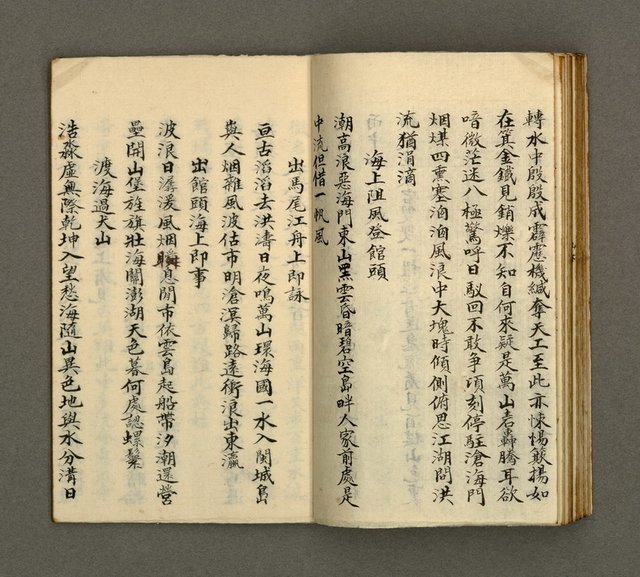 轉水中殷殷成霹靂機緘奪天工至此亦悚惕簸揚如
在箕金鐵見銷爍不知自何來疑是萬山砉轟騰耳欲
喑微茫迷八極驚呼日馭回不敢爭頃刻停駐滄海門
烟煤四熏塞洶洶風浪中大塊時傾側俯思江湖間洪
流猶涓滴
海上阻風登館頭
潮高浪惡海門東山黑雲昏暗碧空島畔人家前處是
中流但借一帆風
出馬尾江舟上即詠
亘古滔滔去洪濤日夜鳴萬山環海國一水入閩城島
與人烟雜風波估市明滄溟歸路遠衝浪出東瀛
出館頭海上即事
波浪日潺湲風烟瞬息間市依雲島起船帶汐潮還營
壘開山堡旌旗壯海關澎湖天色暮何處認螺鬟
渡海過大山
浩淼虛無際乾坤入望愁海隨山異色地與水分溝日